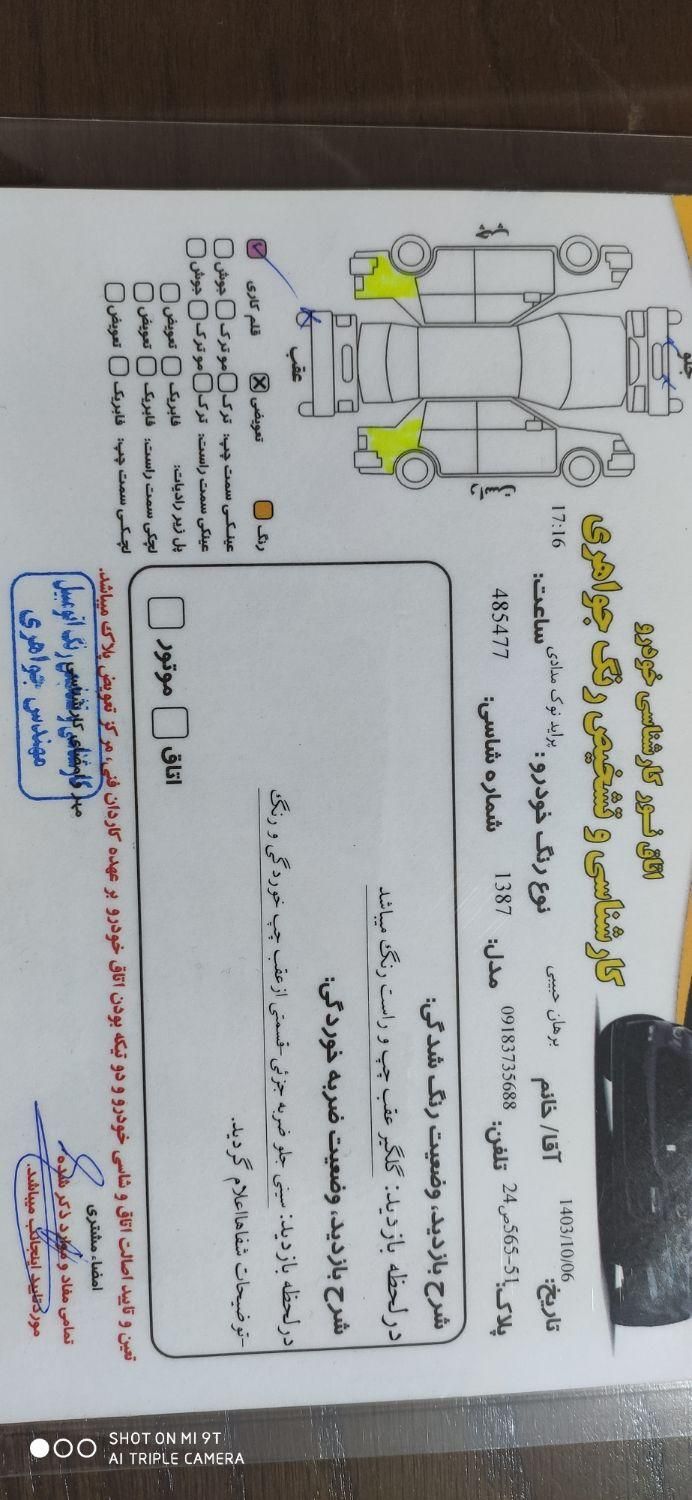 اتاق نور کارشناسی خودرو
کارشناسی و تشخیص رنگ جواهری
تاریخ: 1403/10/06
آقا/ خانم برهان حبیبی
نوع رنگ خودرو: پراید نوک مدادی
ساعت: 17:16
پلاک: 51-565ص24
تلفن: 09183735688
مدل: 1387
شماره شاسی: 485477
جلو
عقب
چپ
راست
شرح بازدید، وضعیت رنگ شدگی:
درلحظه بازدید: گلگیر عقب چپ و راست رنگ میباشد
شرح بازدید، وضعیت ضربه خوردگی:
درلحظه بازدید: سینی جلو ضربه جزئی -قسمتی ازعقب چپ خوردگی و رنگ
-توضیحات شفاهااعلام گردید.
اتاق
موتور
رنگ
تعویضی
قلم کاری
عینکی سمت چپ: ترک مو ترک جوش
عینکی سمت راست: ترک مو ترک جوش
پل زیر رادیات: فابریک تعویض
لچکی سمت راست: فابریک تعویض
لچکی سمت چپ: فابریک تعویض
تعین و تایید اصالت اتاق و شاسی خودرو و دو تیکه بودن اتاق خودرو بر عهده کاردان فنی، مرکز تعویض پلاک میباشد.
امضاء مشتری
تمامی مفاد و موارد ذکر شده
موردتایید اینجانب میباشد.
مهر و امضای کارشناسی
رنگ اتومبیل
مهندس جواهری
SHOT ON MI 9T
AI TRIPLE CAMERA